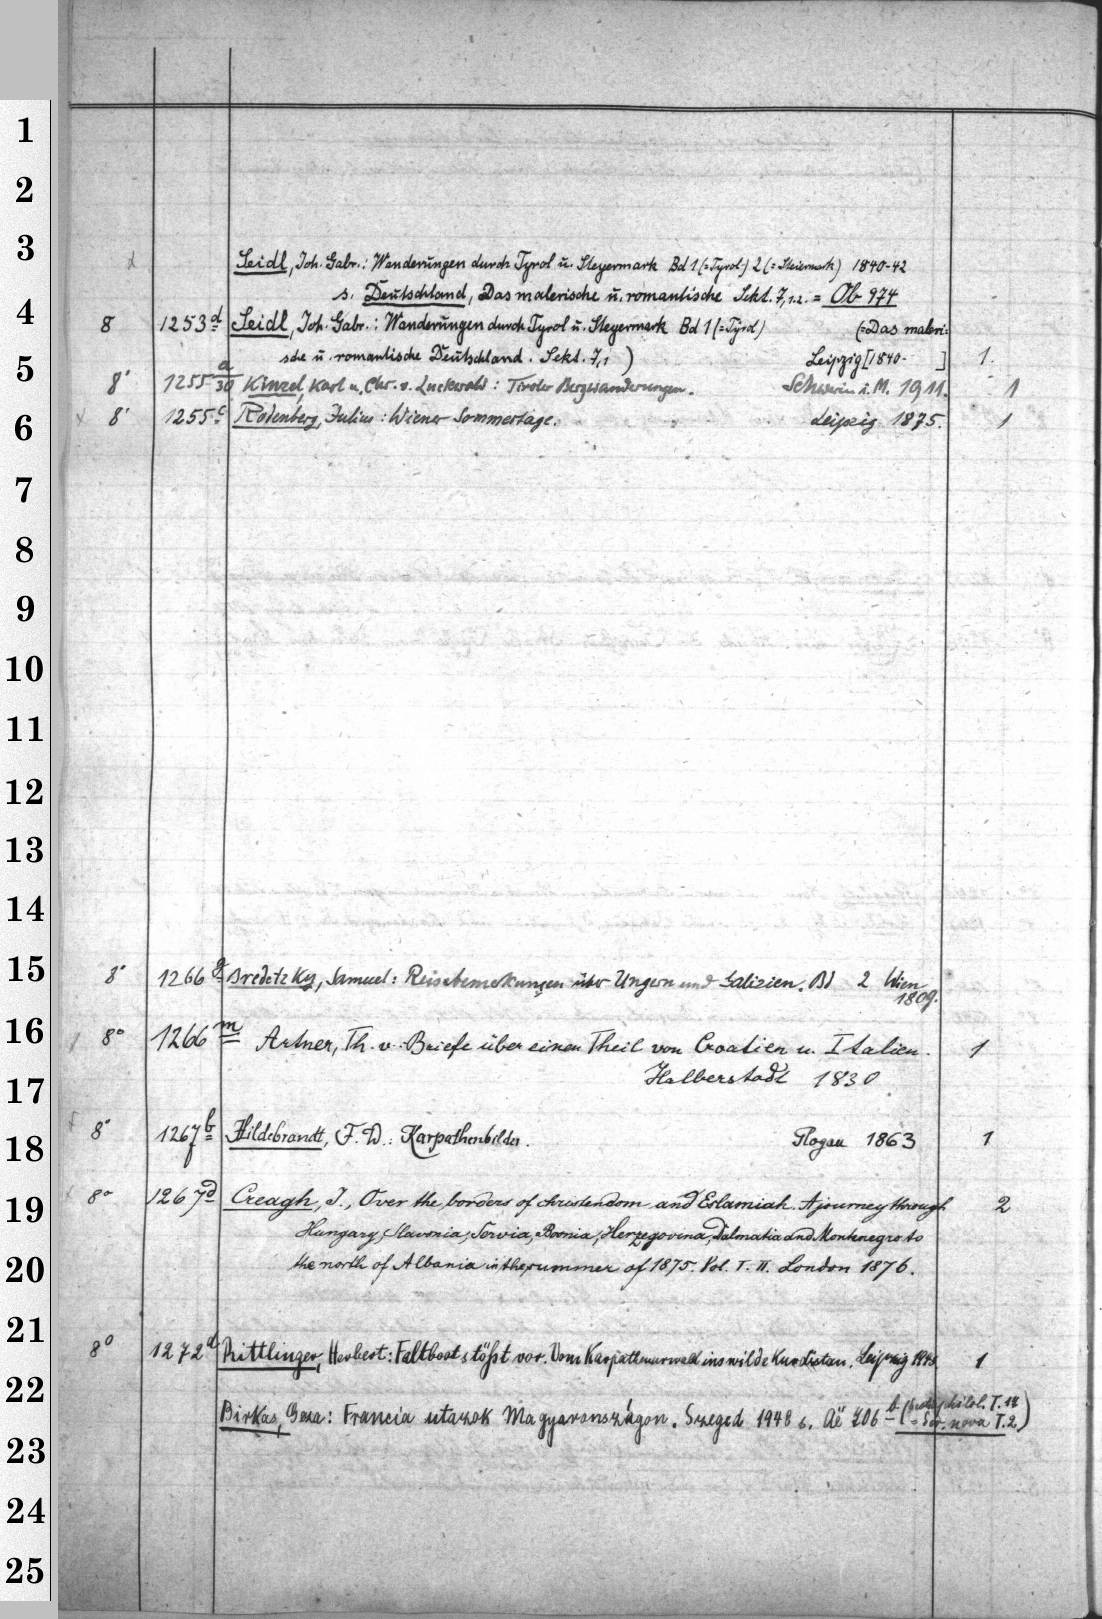 1
2
3
Seidl, Joh. Gabr.: Wanderungen durch Tyrol u. Steyermark Bd 1 (=Tyrol) 2 (=Steiermark) 1840-42
s. Deutschland, Das malerische u. romantische Sekt. 7,1.2. = Ob 974
4
8 1253d Seidl, Joh. Gabr.: Wanderungen durch Tyrol u. Steyermark Bd 1 (=Tyrol) (=Das maleri-
sche u. romantische Deutschland. Sekt. 7,1) Leipzig [1840- ] 1.
5
8° 1255 a/30 Kinzel, Karl u. Chr. v. Luckwald: Tiroler Bergwanderungen. Schwerin i. M. 1911. 1
6
8° 1255c Rodenberg, Julius: Wiener Sommertage. Leipzig 1875. 1
7
8
9
10
11
12
13
14
15
8° 1266g Bredetzky, Samuel: Reisebemerkungen über Ungern und Galizien. Bd 2 Wien
1809.
16
8° 1266m Artner, Th. v. Briefe über einen Theil von Croatien u. Italien. 1
Halberstadt 1830
17
18
8° 1267b Hildebrandt, F. W.: Karpathenbilder. Glogau 1863 1
19
8° 1267d Creagh, J., Over the borders of christendom and Eslamiah. A journey through 2
Hungary, Slavonia, Servia, Bosnia, Herzegovina, Dalmatia and Montenegro to
20
the north of Albania in the summer of 1875. Vol. I. II. London 1876.
21
8° 1272d Rittlinger, Herbert: Faltboot stößt vor. Vom Karpathenurwald ins wilde Kurdistan. Leipzig 1
22
Birkas, Geza: Francia utazok Magyarországon. Szeged 1948 s. Aë 706 b (philol. T. 
= Ser. nova T. 2)
23
24
25